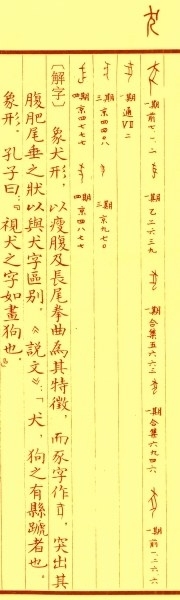 一期前七·一·二 一期乙二六三九 一期合集五六六三 一期合集六九四六 一期前一·二·六·六
一期遺Ⅶ二
三期京四四〇八 三期京九七〇
四期京四七七七 四期京四八七七
〔解字〕象犬形，以瘦腹及長尾拳曲為其特徵，而豕字作，突出其
腹肥尾垂之狀以與犬字區別。《說文》：「犬，狗之有縣蹏者也。
象形。孔子曰：『視犬之字如畫狗也。